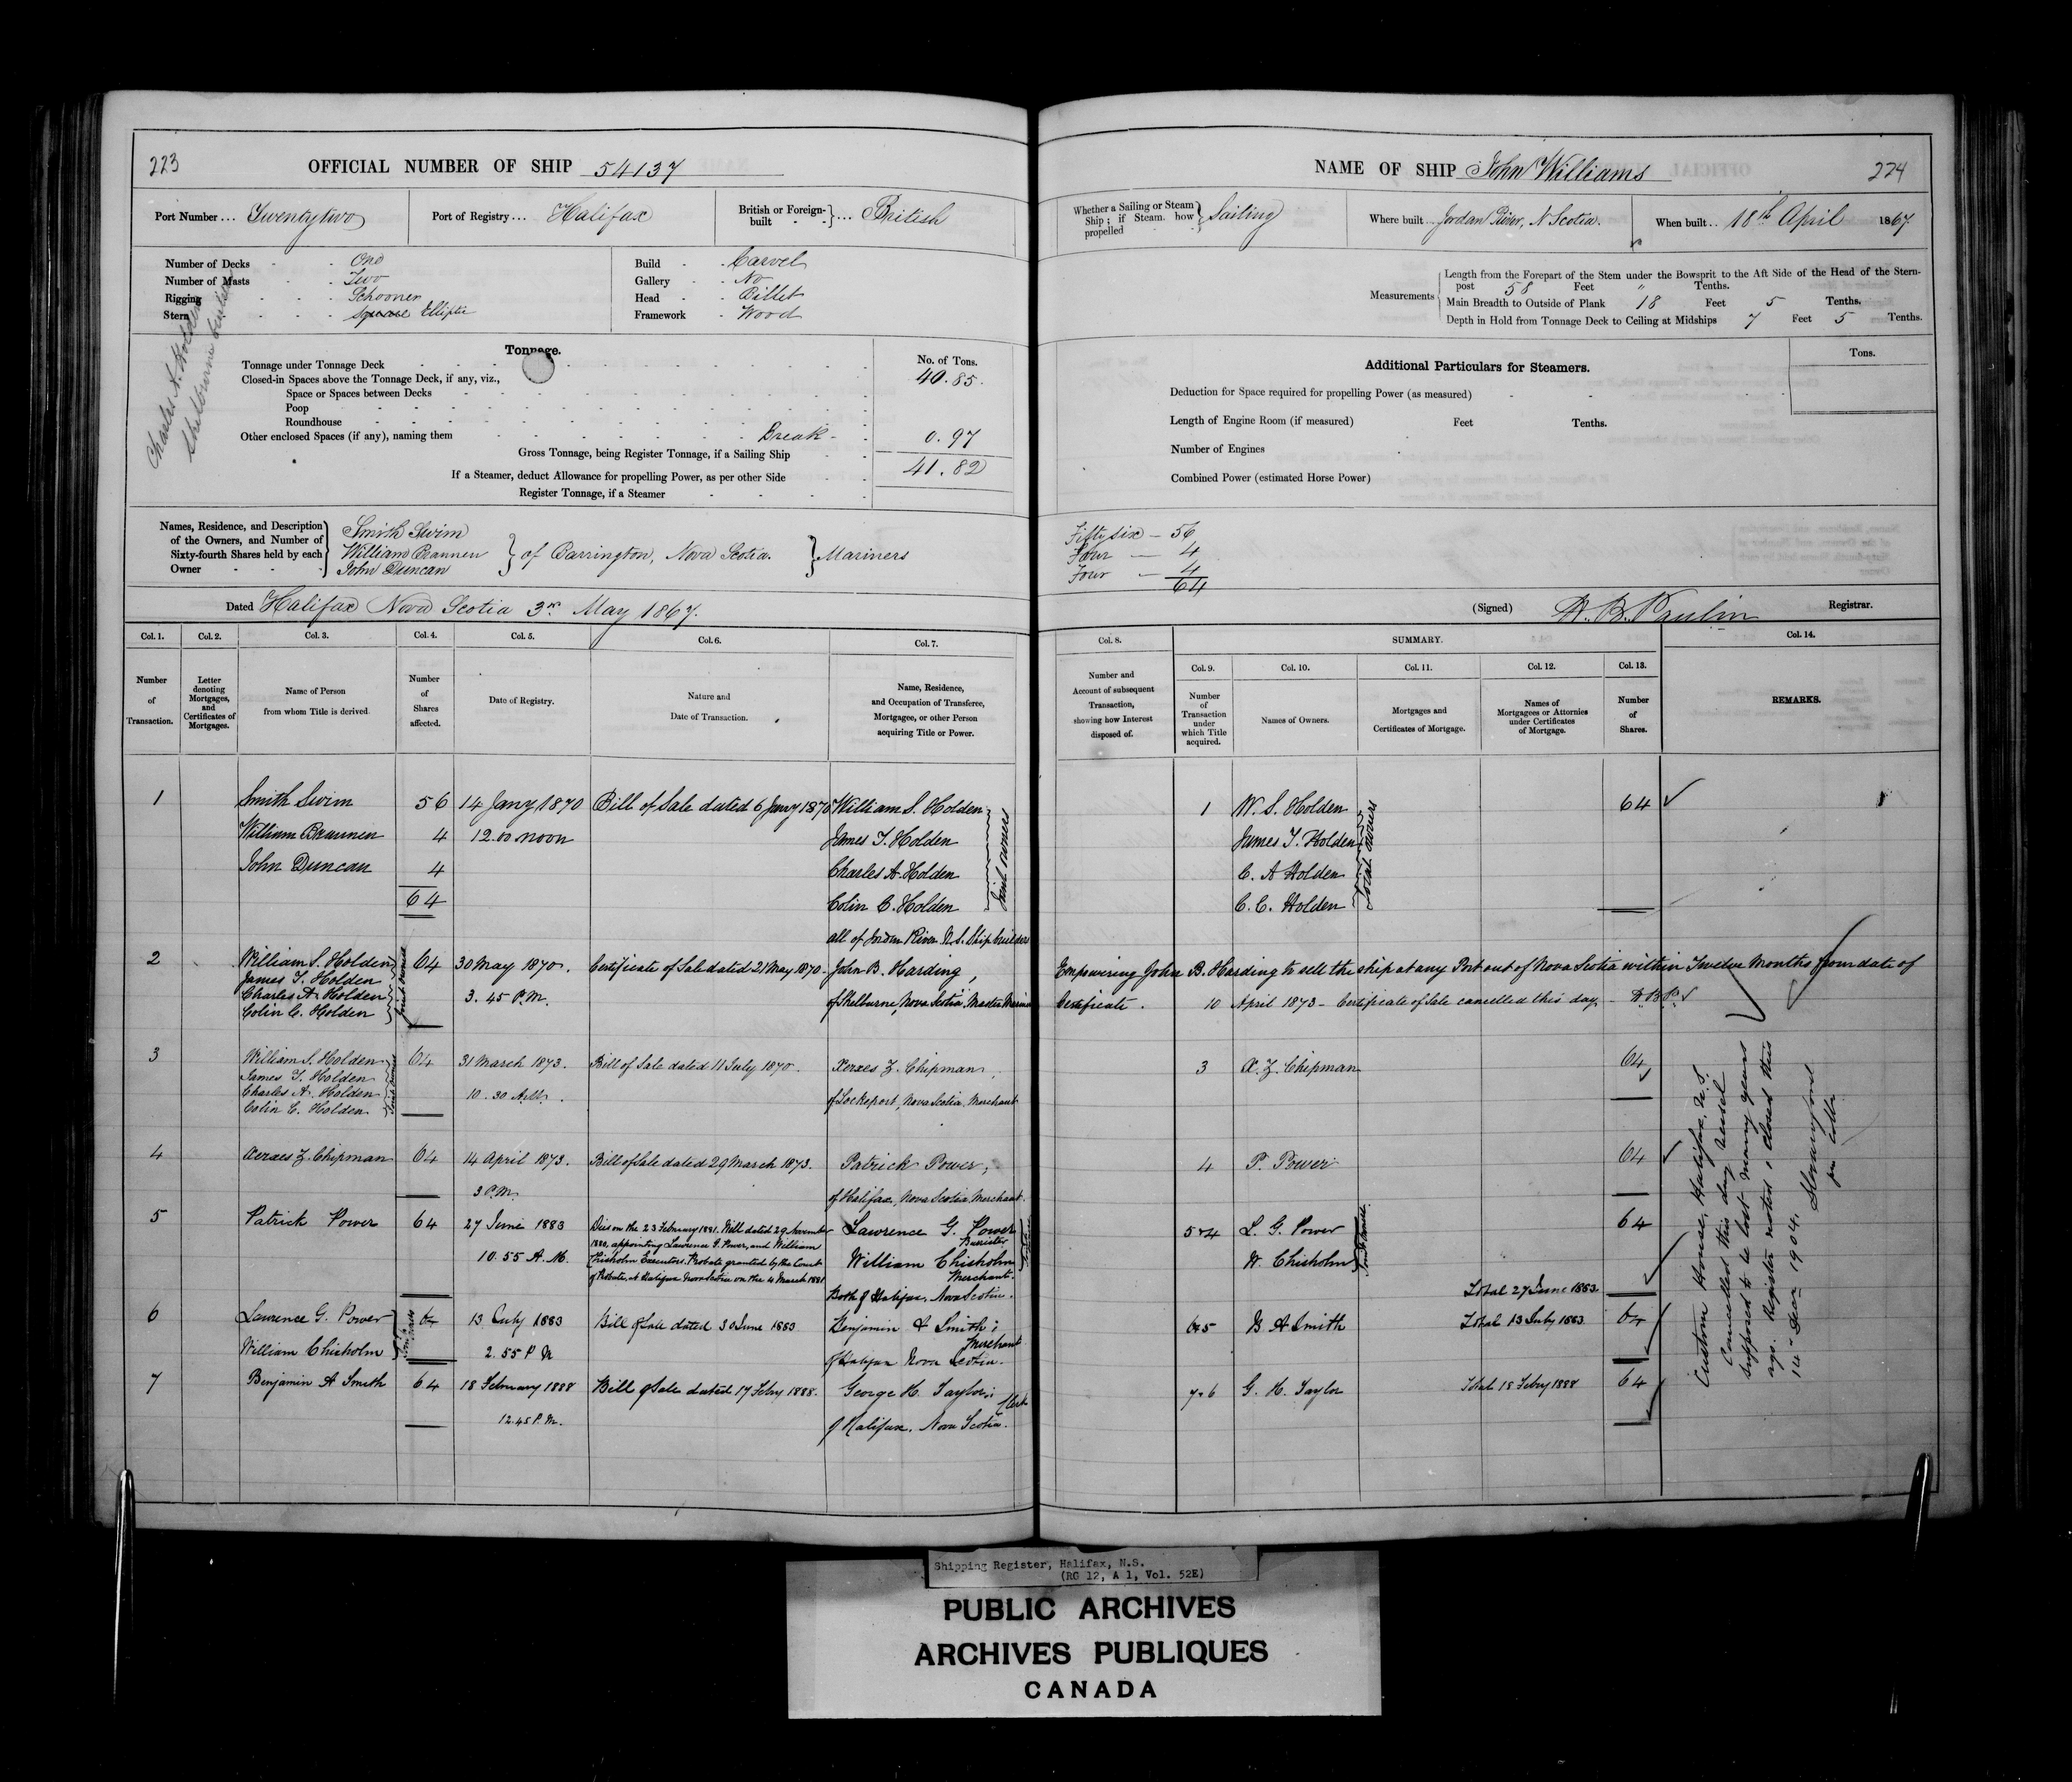 223
OFFICIAL NUMBER OF SHIP 54137
Port Number ... Twentytwo
Port of Registry ... Halifax
British or Foreign-built } ... British
Number of Decks - - One
Number of Masts - - Two
Rigging - - - Schooner
Stern - - - Square Elliptic
Build - - Carvel
Gallery - - No
Head - - Billet
Framework - Wood
Charles A. Holden
Shelburne builder
Tonnage.
No. of Tons.
Tonnage under Tonnage Deck 40.85.
Closed-in Spaces above the Tonnage Deck, if any, viz.,
Space or Spaces between Decks
Poop
Roundhouse
Other enclosed Spaces (if any), naming them Break - 0.97
Gross Tonnage, being Register Tonnage, if a Sailing Ship 41.82
If a Steamer, deduct Allowance for propelling Power, as per other Side
Register Tonnage, if a Steamer
Names, Residence, and Description of the Owners, and Number of Sixty-fourth Shares held by each Owner
Smith Swim
William Brannen } of Barrington, Nova Scotia. } Mariners
John Duncan
Dated Halifax Nova Scotia 3rd May 1867.
Col. 1. Col. 2. Col. 3. Col. 4. Col. 5. Col. 6. Col. 7.
Number of Transaction.
Letter denoting Mortgages, and Certificates of Mortgages.
Name of Person from whom Title is derived.
Number of Shares affected.
Date of Registry.
Nature and Date of Transaction.
Name, Residence, and Occupation of Transferee, Mortgagee, or other Person acquiring Title or Power.
1 Smith Swim 56 14 Jany 1870 Bill of Sale dated 6 Jany 1870 William S. Holden
William Brannen 4 12.00 noon James T. Holden
John Duncan 4 Charles A. Holden
64 Colin C. Holden
Joint owners
all of Jordan River N.S. Ship builders
2 William S. Holden 64 30 May 1870. Certificate of Sale dated 21 May 1870 - John B. Harding,
James T. Holden
Charles A. Holden 3.45 P.M. of Shelburne, Nova Scotia, Master Mariner
Colin C. Holden
Joint Owners
3 William S. Holden 64 31 March 1873. Bill of Sale dated 11 July 1870. Xerxes Z. Chipman,
James T. Holden
Charles A. Holden 10.30 A.M. of Lockeport, Nova Scotia, Merchant
Colin C. Holden
Joint Owners
4 Xerxes Z. Chipman 64 14 April 1873. Bill of Sale dated 29 March 1873. Patrick Power,
3 P.M. of Halifax, Nova Scotia, Merchant.
5 Patrick Power 64 27 June 1883 Died on the 23 February 1881. Will dated 29 November Lawrence G. Power
1880, appointing Lawrence G. Power, and William Barrister
10.55 A.M. Chisholm Executors. Probate granted by the Court William Chisholm
of Probate, at Halifax Nova Scotia on the 4 March 1881 Merchant.
Both of Halifax, Nova Scotia.
6 Lawrence G. Power 64 13 July 1883 Bill of Sale dated 30 June 1883 Benjamin A Smith;
Merchant
William Chisholm 2.55 P M of Halifax Nova Scotia.
7 Benjamin A Smith 64 18 February 1888 Bill of Sale dated 17 Feby 1888. George H. Taylor;
Clerk
12.45 P.M. of Halifax. Nova Scotia.
NAME OF SHIP John Williams
224
Whether a Sailing or Steam Ship; if Steam, how propelled } Sailing
Where built .. Jordan River, N Scotia.
When built .. 18th April 1867
Measurements
Length from the Forepart of the Stem under the Bowsprit to the Aft Side of the Head of the Stern-
post 58 Feet " Tenths.
Main Breadth to Outside of Plank 18 Feet 5 Tenths.
Depth in Hold from Tonnage Deck to Ceiling at Midships 7 Feet 5 Tenths.
Additional Particulars for Steamers.
Tons.
Deduction for Space required for propelling Power (as measured)
Length of Engine Room (if measured) Feet Tenths.
Number of Engines
Combined Power (estimated Horse Power)
Fifty six - 56
Four - 4
Four - 4
64
(Signed) H. B. Paulin Registrar.
Col. 8. SUMMARY. Col. 14.
Col. 9. Col. 10. Col. 11. Col. 12. Col. 13.
Number and Account of subsequent Transaction, showing how Interest disposed of.
Number of Transaction under which Title acquired.
Names of Owners.
Mortgages and Certificates of Mortgage.
Names of Mortgagees or Attornies under Certificates of Mortgage.
Number of Shares.
REMARKS.
1 W. S. Holden 64
James T. Holden
C. A Holden
C. C. Holden
Joint owners
Empowering John B. Harding to sell the ship at any Port out of Nova Scotia within Twelve Months from date of
Certificate. 10 April 1873 - Certificate of Sale cancelled this day -
3 X. Z. Chipman 64
4 P. Power 64
5 & 4 L. G. Power 64
W. Chisholm
Joint Owners
Total 27 June 1883.
6 & 5 B A Smith Total 13 July 1883 64
7 & 6 G. H. Taylor Total 18 Feby 1888 64
Custom House, Halifax, N.S.
Cancelled this day Vessel
supposed to be lost many years
ago. Register notes, closed this
14th Dec 1904.
Shipping Register, Halifax, N.S.
(RG 12, A 1, Vol. 52E)
PUBLIC ARCHIVES
ARCHIVES PUBLIQUES
CANADA